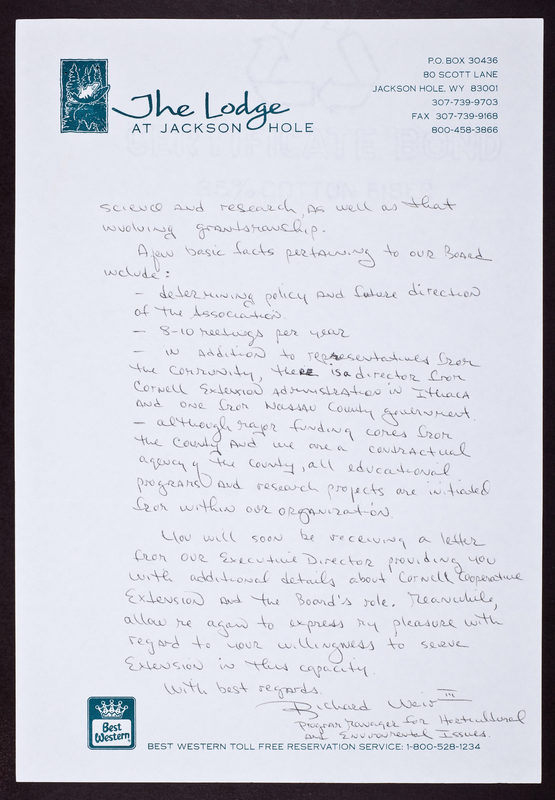 The Lodge
AT JACKSON HOLE
P.O. BOX 30436
80 SCOTT LANE
JACKSON HOLE, WY 83001
307-739-9703
FAX 307-739-9168
800-458-3866
science and research, as well as that
involving grantsmanship.
A few basic facts pertaining to our Board
include:
- determining policy and future direction
of the Association
- 8-10 meetings per year
- in addition to representatives from
the community, there is a director from
Cornell Extension Administration in Ithaca
and one from Nassau County government.
- although major funding comes from
the County and we are a contractual
agency of the county, all educational
programs and research projects are initiated
from within our organization.
You will soon be receiving a letter
from our Executive Director providing you
with additional details about Cornell Cooperative
Extension and the Board's role. Meanwhile,
allow me again to express my pleasure with
regard to your willingness to serve
Extension in this capacity.
With best regards.
Richard Weir III
Program Manager for Horticultural
and Environmental Issues.
Best
Western
BEST WESTERN TOLL FREE RESERVATION SERVICE: 1-800-528-1234